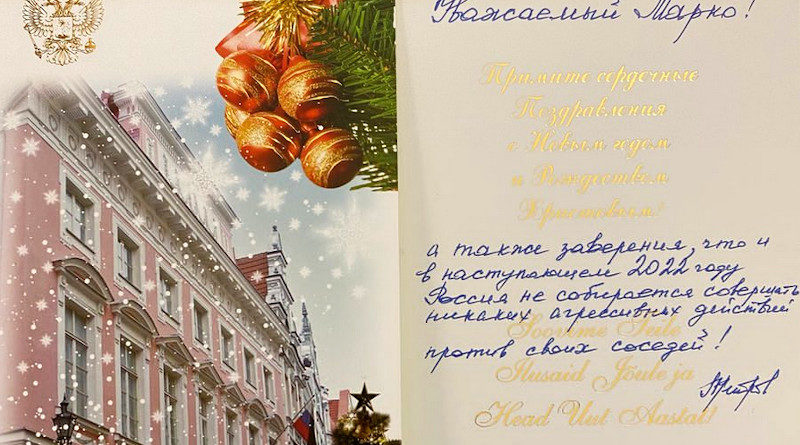 Уважаемый Марко!
Примите сердечные
Поздравления
с Новым годом
и Рождеством
Христовым!
а также заверения, что и
в наступающем 2022 году
Россия не собирается совершать
никаких агрессивных действий
против своих соседей!
Soovime Teile
Ilusaid Jõule ja
Head Uut Aastat!